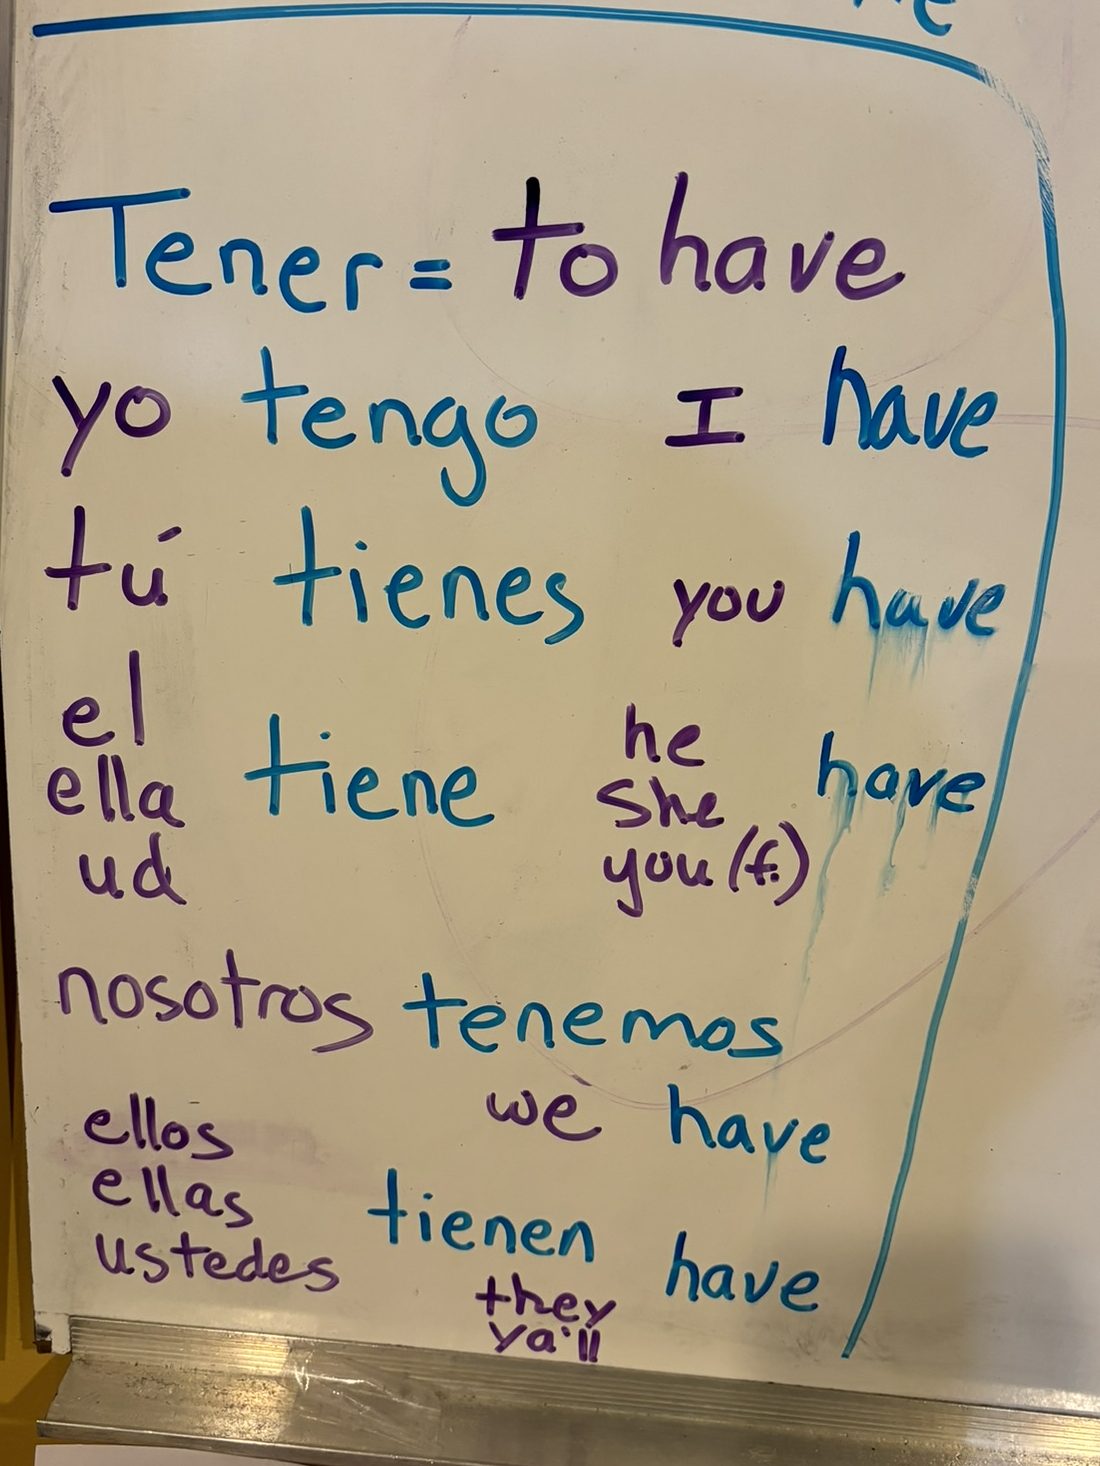 Tener = to have
yo tengo I have
tú tienes you have
el
ella tiene
ud
he
she have
you (f.)
nosotros tenemos
we have
ellos
ellas tienen
ustedes
they have
ya'll